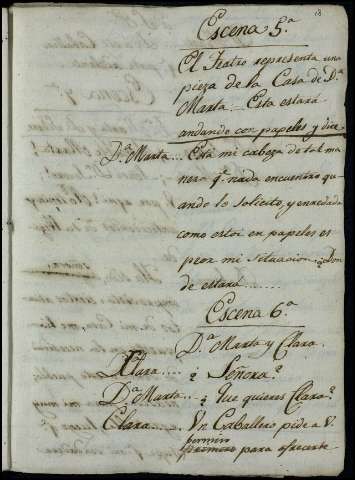 18
Escena 5.ª
El Teatro representa una
pieza de la Casa de D.ª
Marta. Esta estará
andando con papeles y dice
D.ª Marta.... Está mi cabeza de tal ma
nera q.e nada encuentro qu
ando lo solicito, y enredada
como estoi en papeles es
peor mi situacion
de estará......
Escena 6.ª
D.ª Marta y Clara.
Clara.... ¿ Señora?
D.ª Marta... ¿ Que quieres Clara?
Clara...... Un Caballero pide a V.
permiso
para ofrecerte